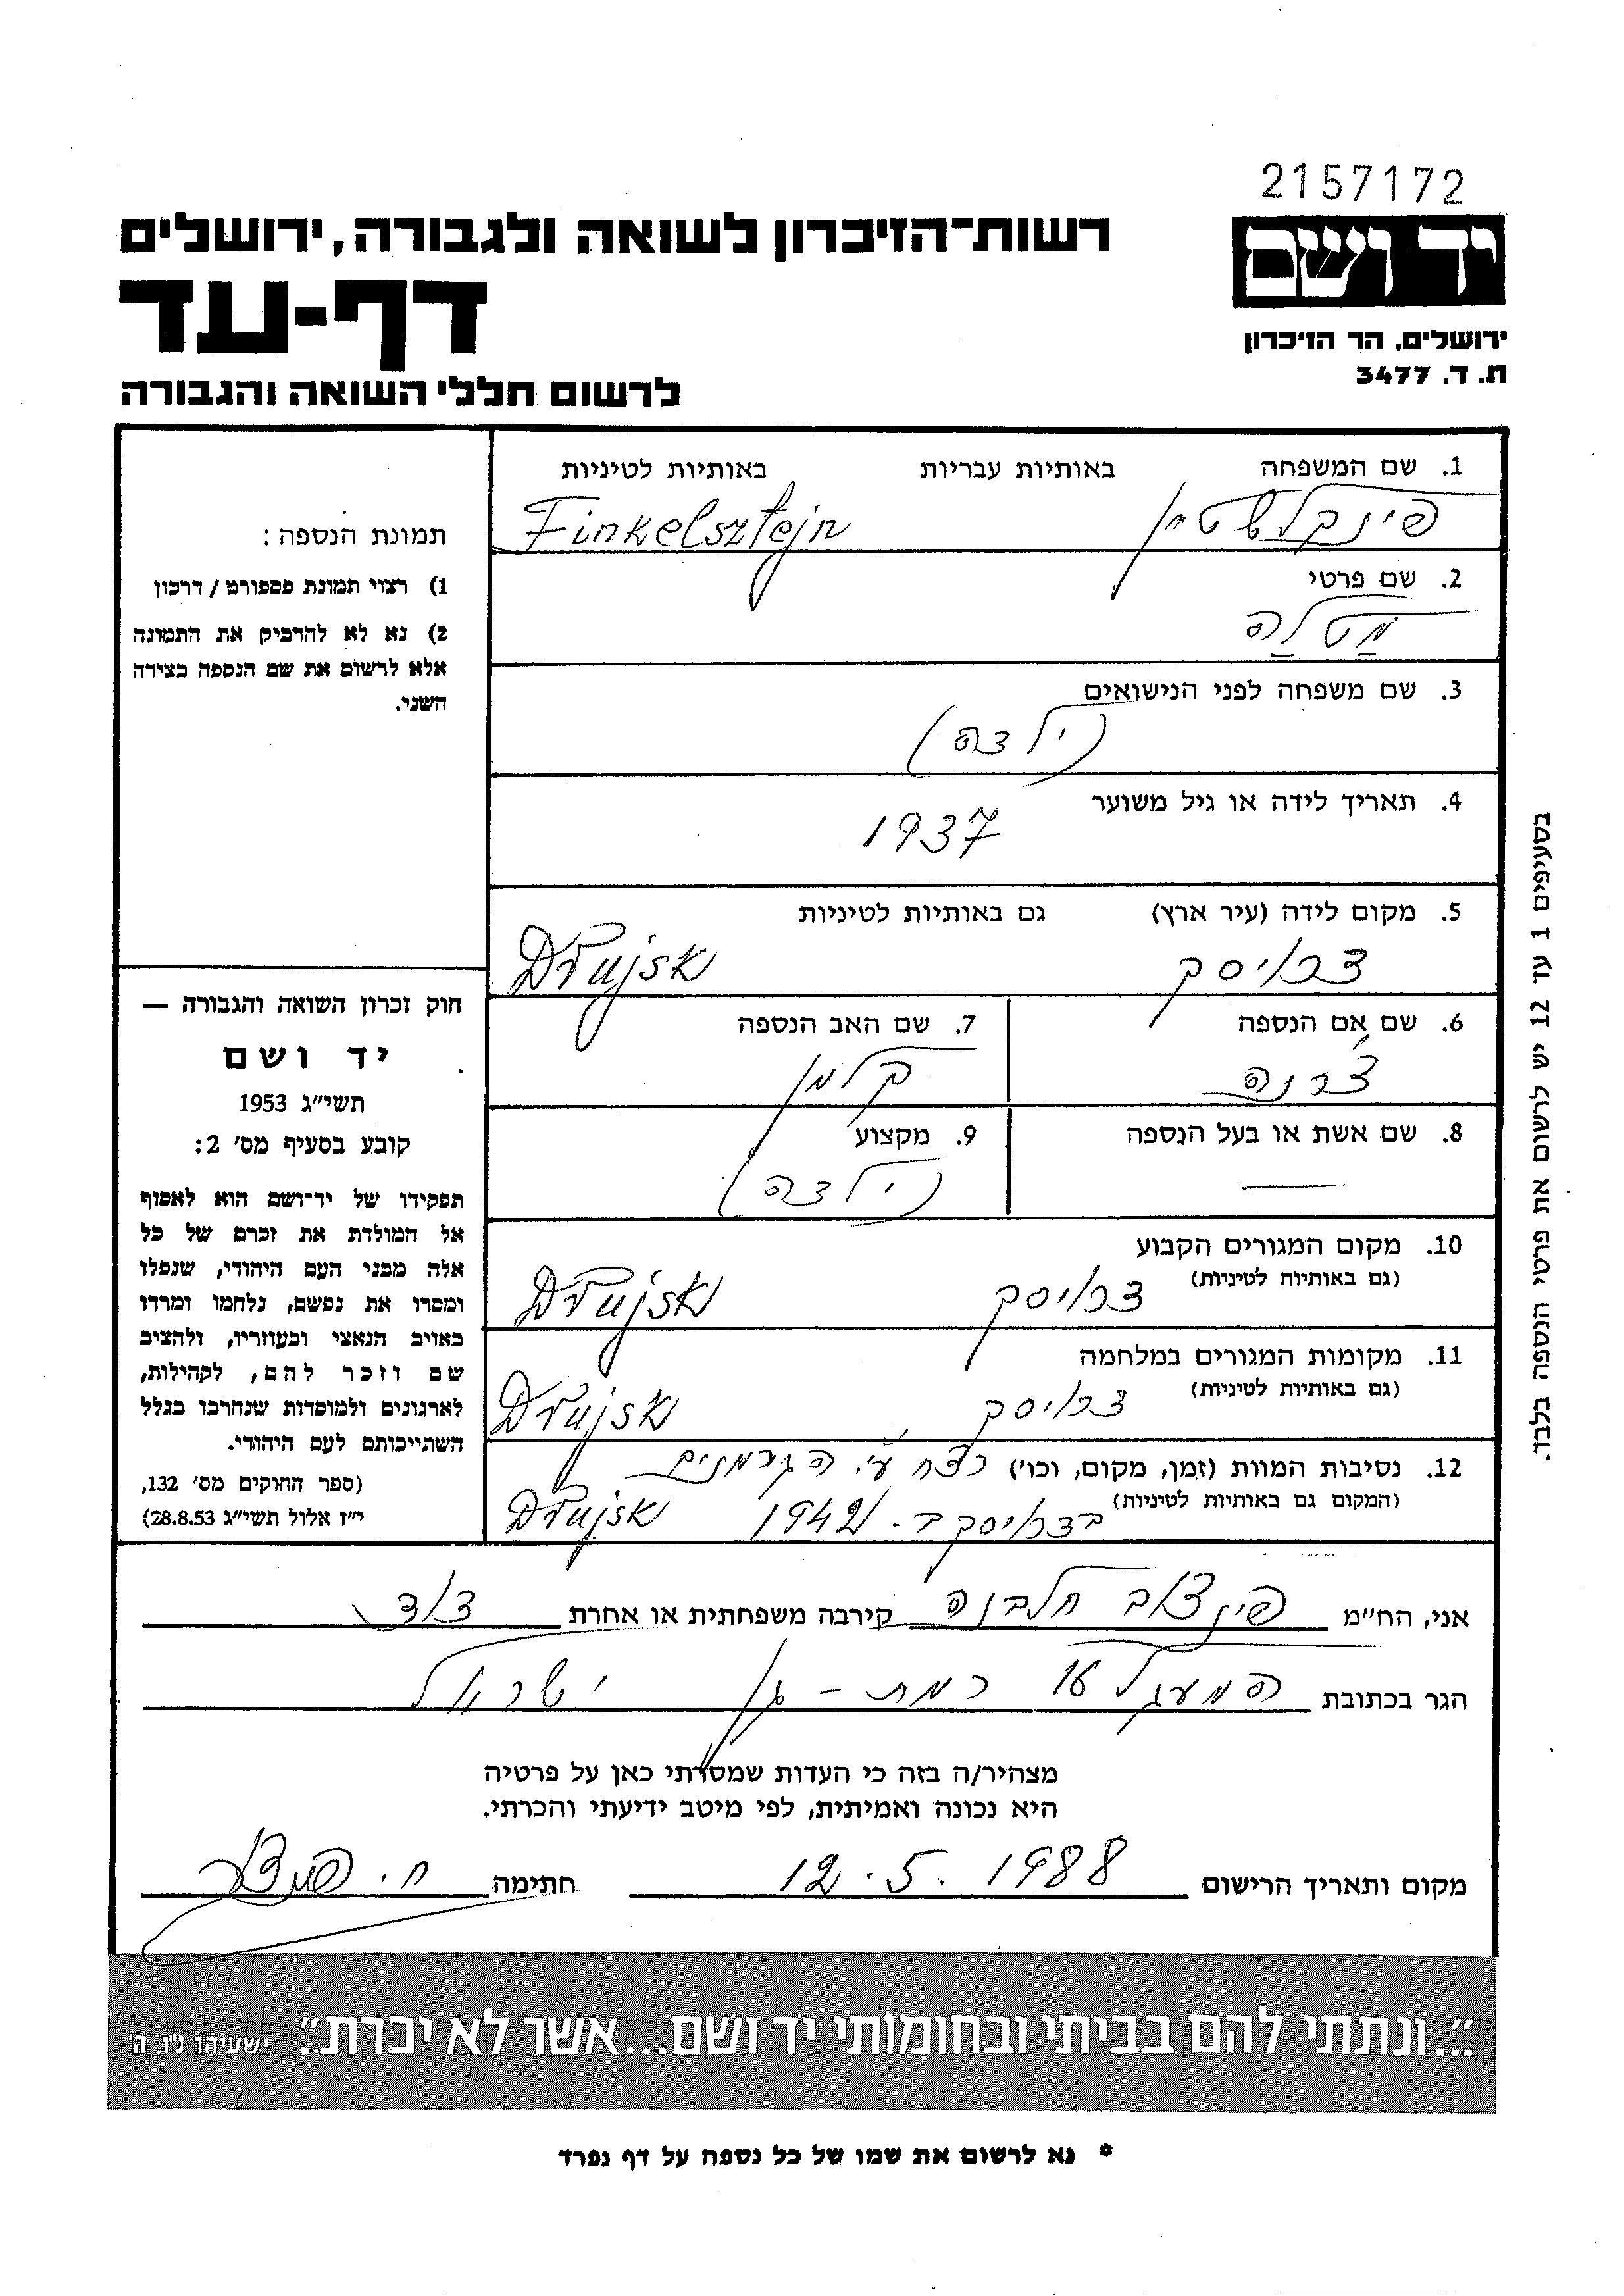 2157172
יד ושם
ירושלים, הר הזיכרון
ת. ד. 3477
רשות־הזיכרון לשואה ולגבורה, ירושלים
דף-עד
לרשום חללי השואה והגבורה
1. שם המשפחה באותיות עבריות באותיות לטיניות
פינקלשטיין Finkelsztejn
2. שם פרטי
מַטלַה
3. שם משפחה לפני הנישואים
(ילדה)
4. תאריך לידה או גיל משוער
1937
5. מקום לידה (עיר ארץ) גם באותיות לטיניות
דרויסק Drujsk
6. שם אם הנספה
7. שם האב הנספה
קלמן
8. שם אשת או בעל הנספה
—
9. מקצוע
(ילדה)
10. מקום המגורים הקבוע
(גם באותיות לטיניות)
דרויסק Drujsk
11. מקומות המגורים במלחמה
(גם באותיות לטיניות)
דרויסק Drujsk
12. נסיבות המוות (זמן, מקום, וכו') נצח ע"י הגרמנים
(המקום גם באותיות לטיניות)
בדרויסק ב- 1942 Drujsk
תמונת הנספה:
1) רצוי תמונת פספורט / דרכון
2) נא לא להדביק את התמונה
אלא לרשום את שם הנספה בצידה
השני.
חוק זכרון השואה והגבורה —
יד ושם
תשי"ג 1953
קובע בסעיף מס' 2:
תפקידו של יד־ושם הוא לאסוף
אל המולדת את זכרם של כל
אלה מבני העם היהודי, שנפלו
ומסרו את נפשם, נלחמו ומרדו
באויב הנאצי ובעוזריו, ולהציב
שם וזכר להם, לקהילות,
לארגונים ולמוסדות שנחרבו בגלל
השתייכותם לעם היהודי.
(ספר החוקים מס' 132,
י"ז אלול תשי"ג 28.8.53)
בסעיפים 1 עד 12 יש לרשום את פרטי הנספה בלבד.
אני, הח"מ חלבנה קירבה משפחתית או אחרת דוד
הגר בכתובת המעגל רמת-גן ישראל
מצהיר/ה בזה כי העדות שמסרתי כאן על פרטיה
היא נכונה ואמיתית, לפי מיטב ידיעתי והכרתי.
מקום ותאריך הרישום 12.5.1988 חתימה
"...ונתתי להם בביתי ובחומותי יד ושם...אשר לא יכרת". ישעיהו נ"ו, ה'
* נא לרשום את שמו של כל נספה על דף נפרד